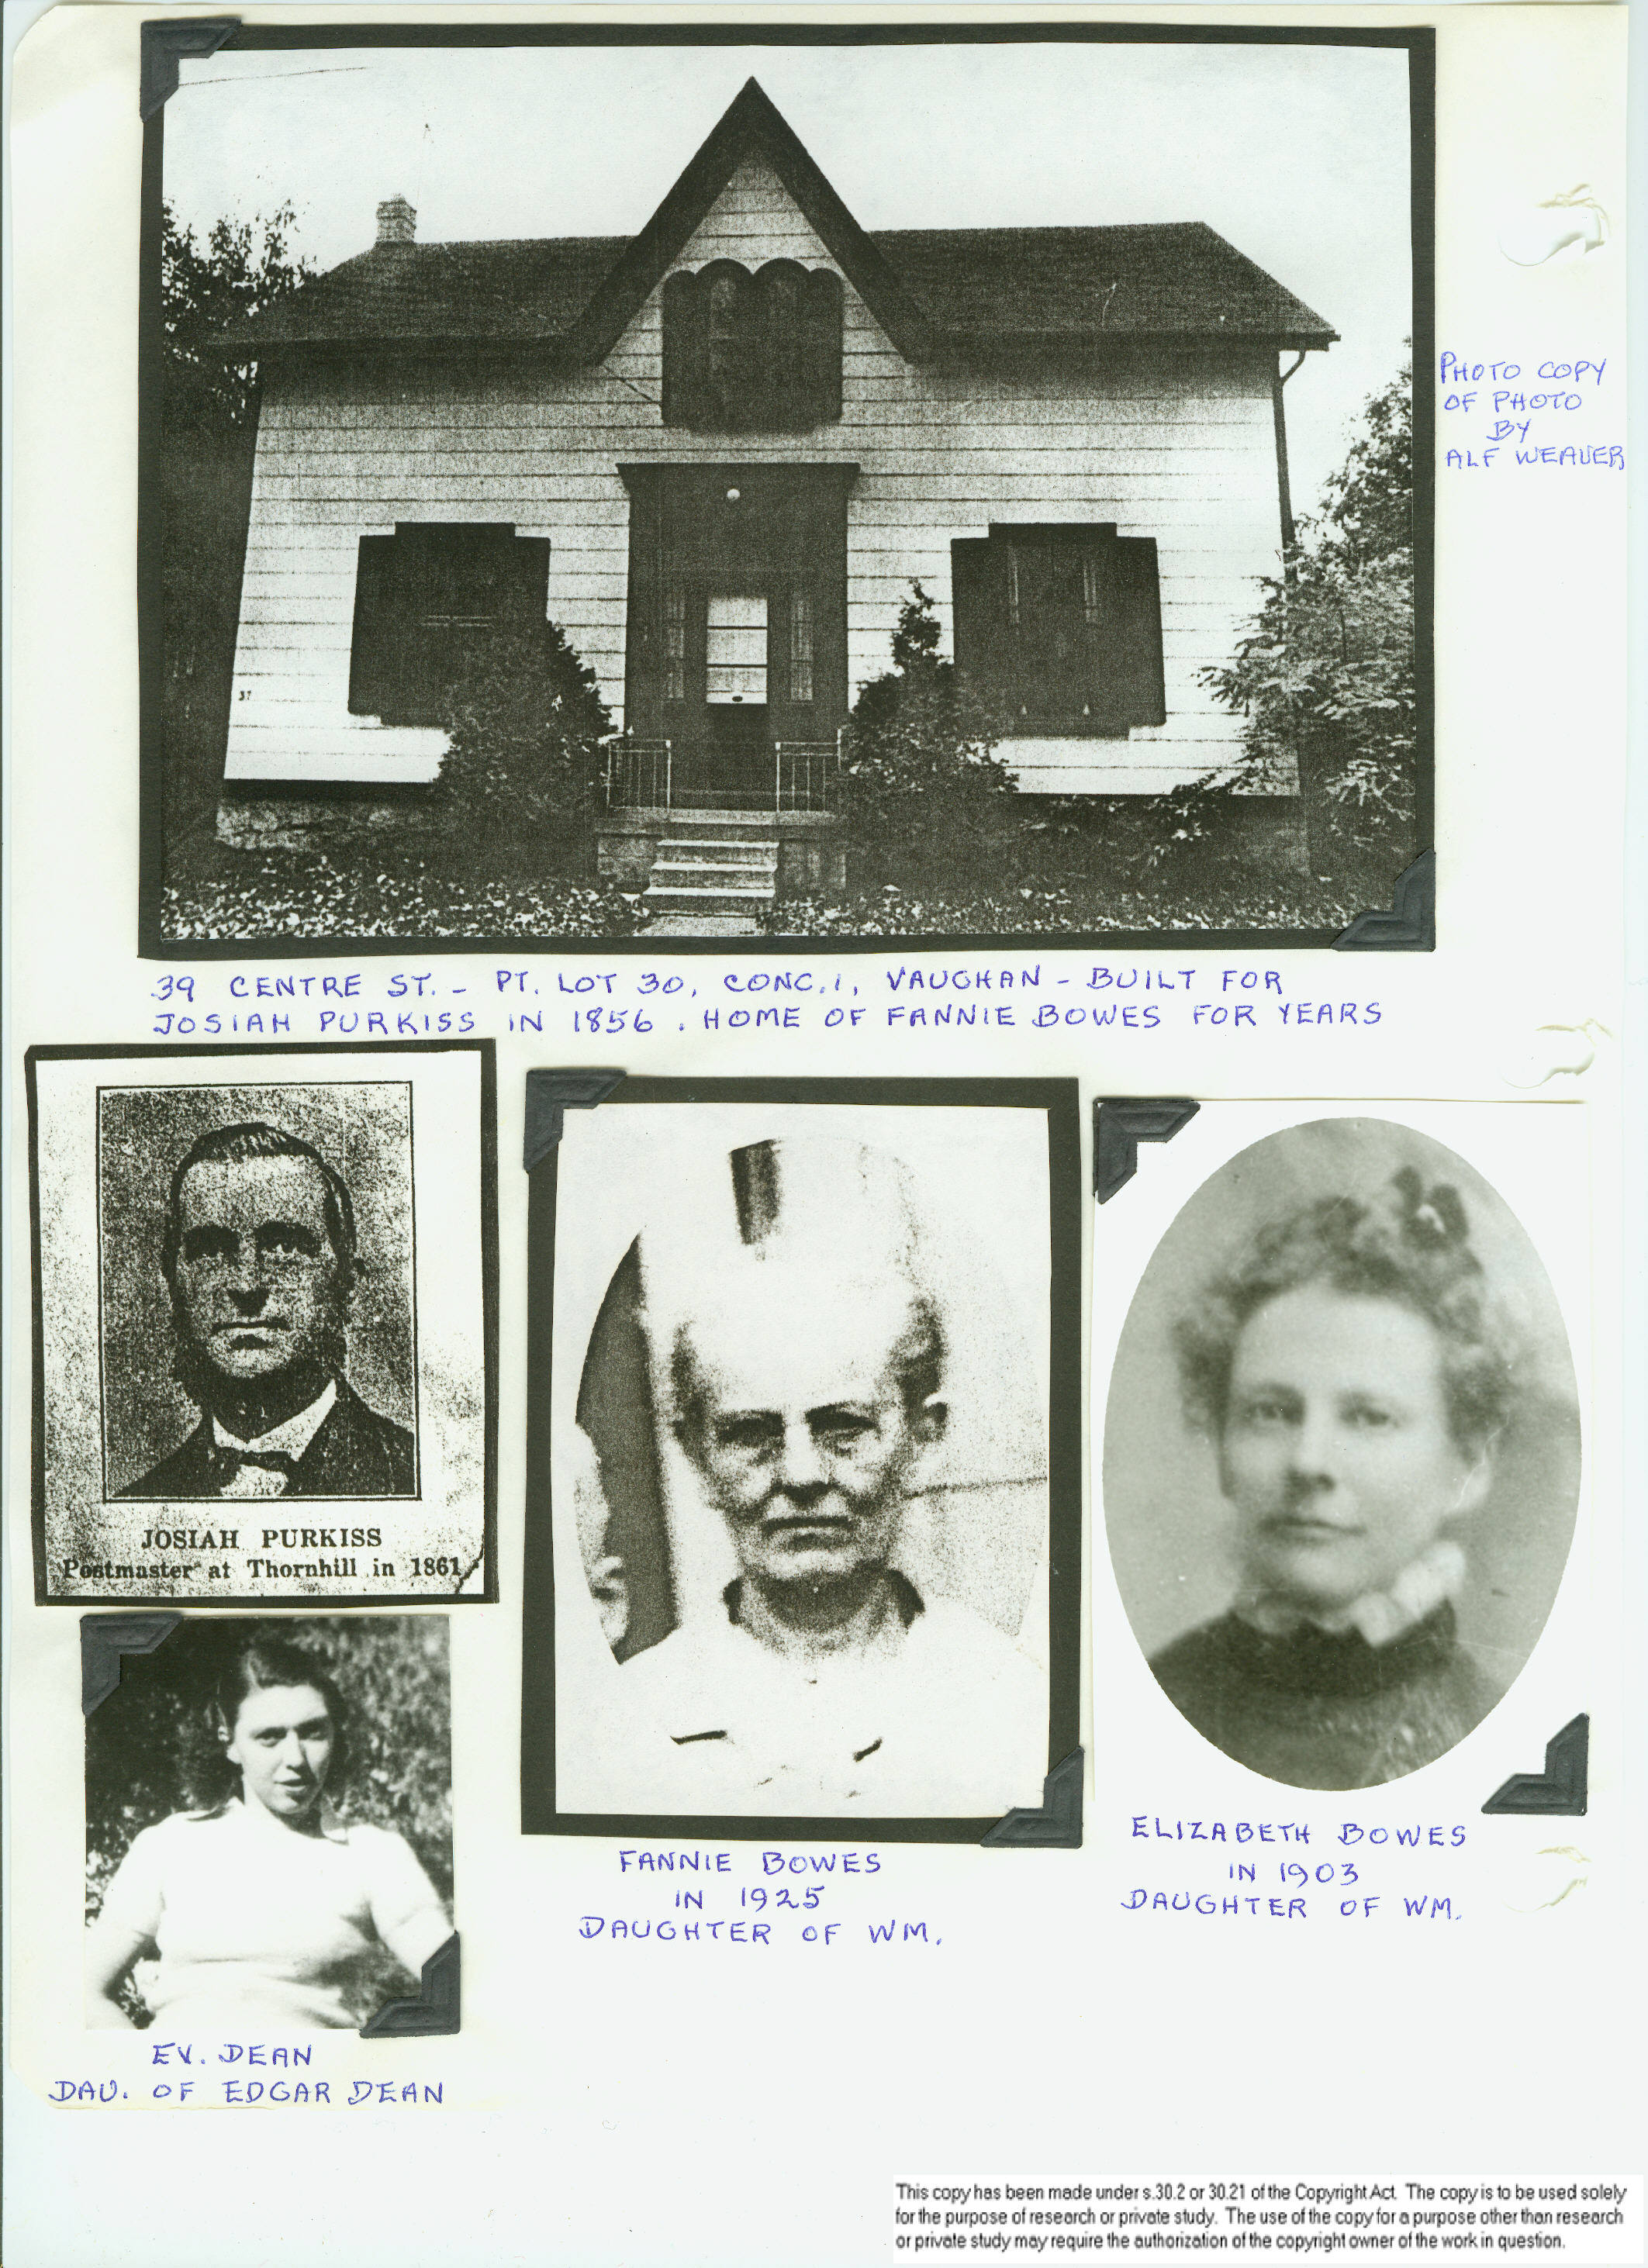 PHOTO COPY
OF PHOTO
BY
ALF WEAVER
37
39 CENTRE ST. - PT. LOT 30, CONC. 1, VAUGHAN - BUILT FOR
JOSIAH PURKISS IN 1856. HOME OF FANNIE BOWES FOR YEARS
JOSIAH PURKISS
Postmaster at Thornhill in 1861
FANNIE BOWES
IN 1925
DAUGHTER OF WM.
ELIZABETH BOWES
IN 1903
DAUGHTER OF WM.
EV. DEAN
DAU. OF EDGAR DEAN
This copy has been made under s.30.2 or 30.21 of the Copyright Act. The copy is to be used solely
for the purpose of research or private study. The use of the copy for a purpose other than research
or private study may require the authorization of the copyright owner of the work in question.